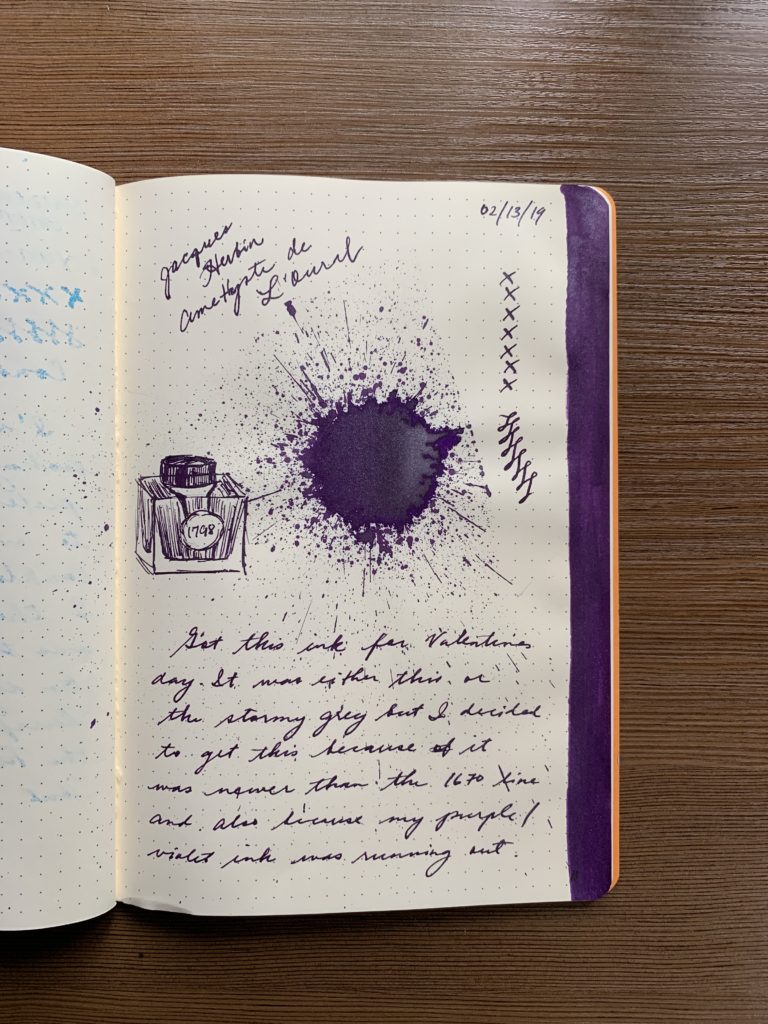 02/13/19
Jacques
Herbin
Amethyste de
L'Oural
x x x x x x x
1798
Got this ink for Valentines
day. It was either this or
the stormy grey but I decided
to get this because of it
was newer than the 1670 line
and also because my purple/
violet ink was running out.